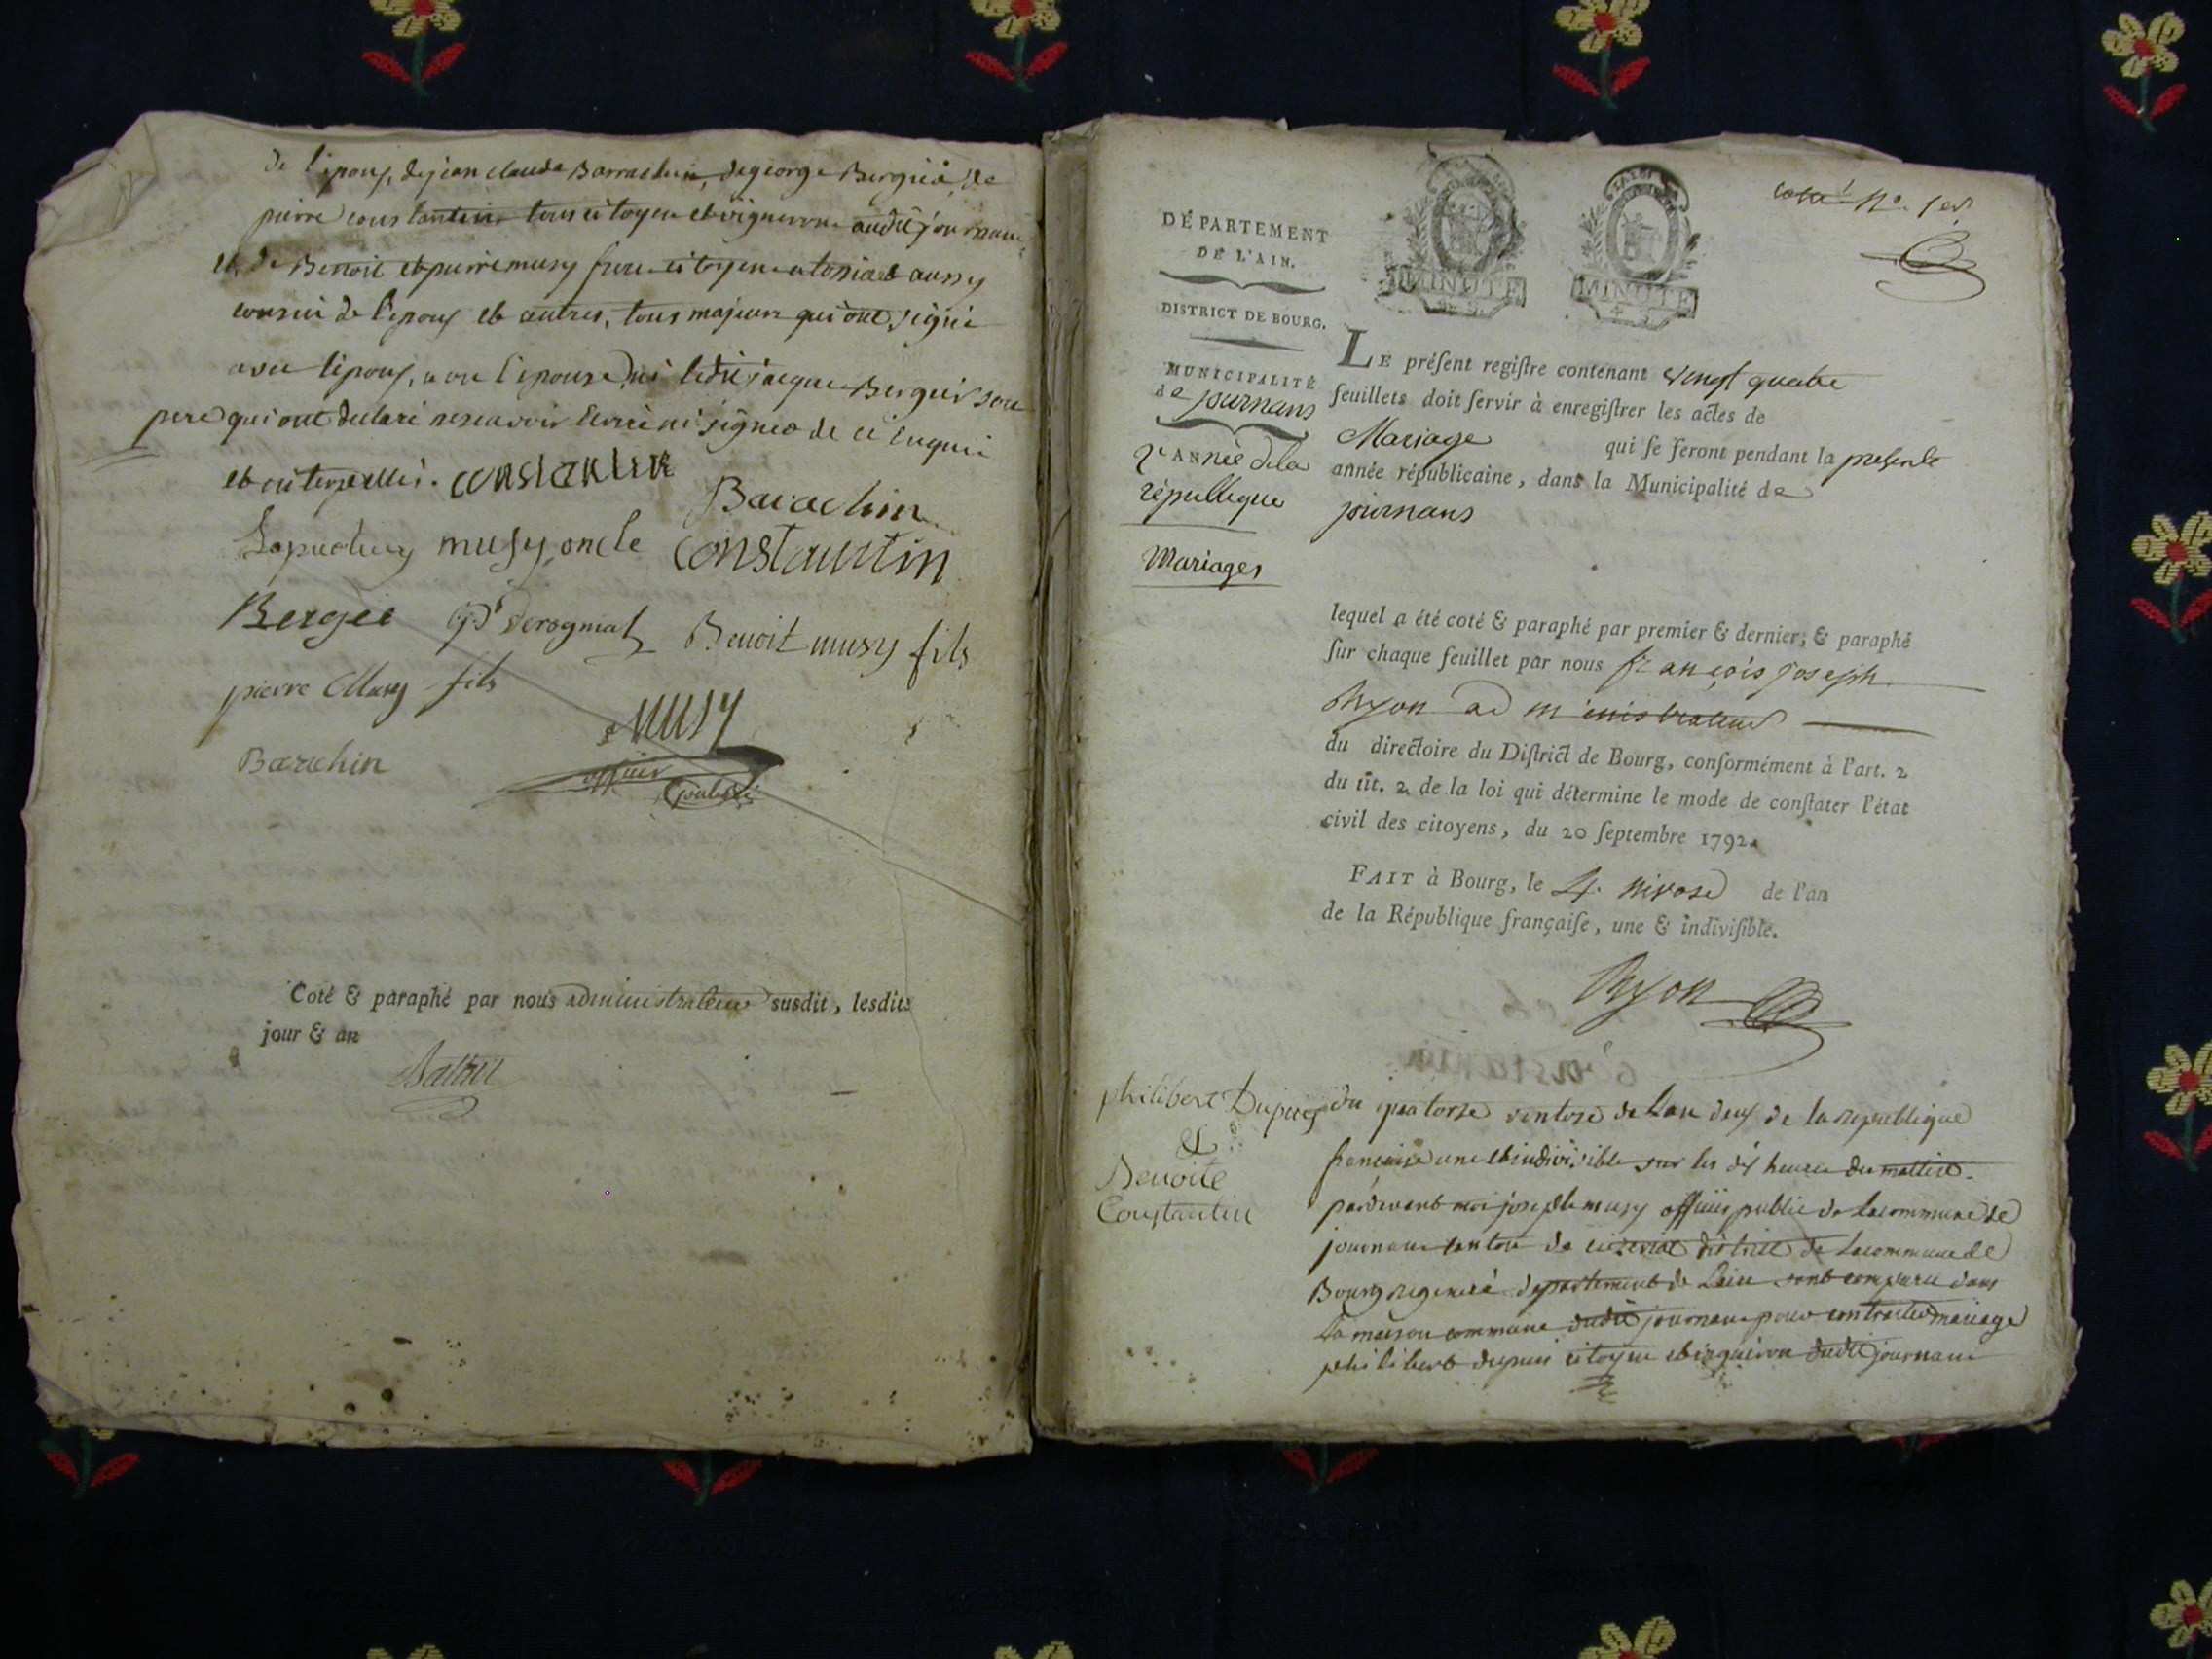 de l'epoux, de jean claude Barrachin, de george Bergier, de
pierre constantin tous citoyen et vigneron audit journans
et de Benoit et pierre musy frere citoyen a tossiat aussy
cousin de l'epoux et autres, tous majeurs qui ont signé
avec l'epoux, non l'epouse ni ledit jacque Bergier son
pere qui ont declaré ne scavoir ecrire ni signer de ce enquis
et interpellés. constantin
Barachin
Lapuedury musy oncle constantin
Bergié derognat Benoit musy fils
pierre Musy fils
musy
officier
public
Barachin
Coté & paraphé par nous administrateur susdit, lesdits
jour & an
cotté No. 1er
DÉPARTEMENT
DE L'AIN.
MINUTE
MINUTE
DISTRICT DE BOURG.
MUNICIPALITÉ
de journans
2e Année de la
république
Mariages
LE préſent regiſtre contenant vingt quatre
feuillets doit ſervir à enregiſtrer les actes de
Mariage qui ſe feront pendant la presente
année républicaine, dans la Municipalité de
journans
lequel a été coté & paraphé par premier & dernier, & paraphé
ſur chaque feuillet par nous françois joseph
Ryon administrateur
du directoire du Diſtrict de Bourg, conformément à l'art. 2
du tit. 2 de la loi qui détermine le mode de conſtater l'état
civil des citoyens, du 20 ſeptembre 1792.
FAIT à Bourg, le 4. nivose de l'an
de la République françaiſe, une & indiviſible.
Ryon
philibert Dupuis
&
Benoite
Constantin
du quatorze ventose de l'an deux de la republique
francaise une et indivisible sur les dix heures du mattin
pardevant moi joseph musy officier public de la commune de
journans canton de ceizeriat district de la commune de
Bourg regeneré departement de L'ain sont comparu dans
La maison commune dudit journans pour contracter mariage
philibert dupuis citoyen et vigneron dudit journans